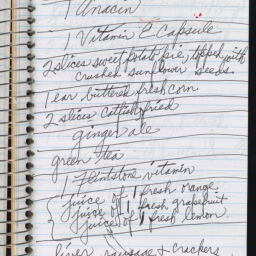 1 Anacin
1 Vitamin E Capsule
2 slices sweet potato pie, topped with
crushed sunflower seeds.
1 ear buttered fresh corn
2 slices catfish fried
ginger ale
green tea
1 Flintstone vitamin
juice of 1 fresh orange
juice of 1 fresh grapefruit
juice of 1 fresh lemon
liver sausage & crackers